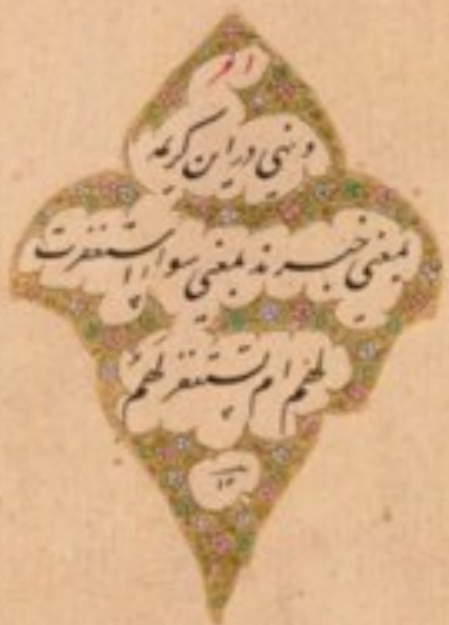 امر
و نهی در این کریمه
بمعنی خبرند بمعنی سواءٌ استغفرت
لهم ام لم تستغفر لهم
۱۲